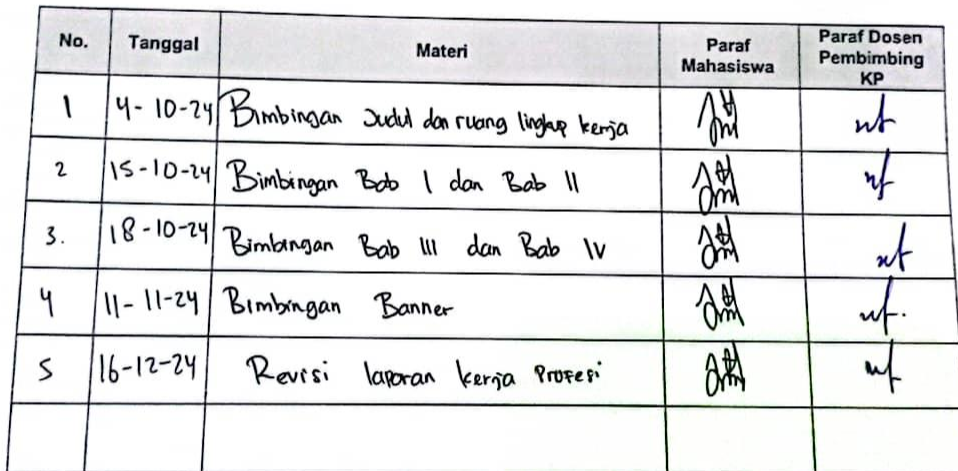 No. Tanggal Materi Paraf Mahasiswa Paraf Dosen Pembimbing KP
1 4-10-24 Bimbingan Judul dan ruang lingkup kerja
2 15-10-24 Bimbingan Bab I dan Bab II
3. 18-10-24 Bimbingan Bab III dan Bab IV
4 11-11-24 Bimbingan Banner
5 16-12-24 Revisi laporan kerja Profesi